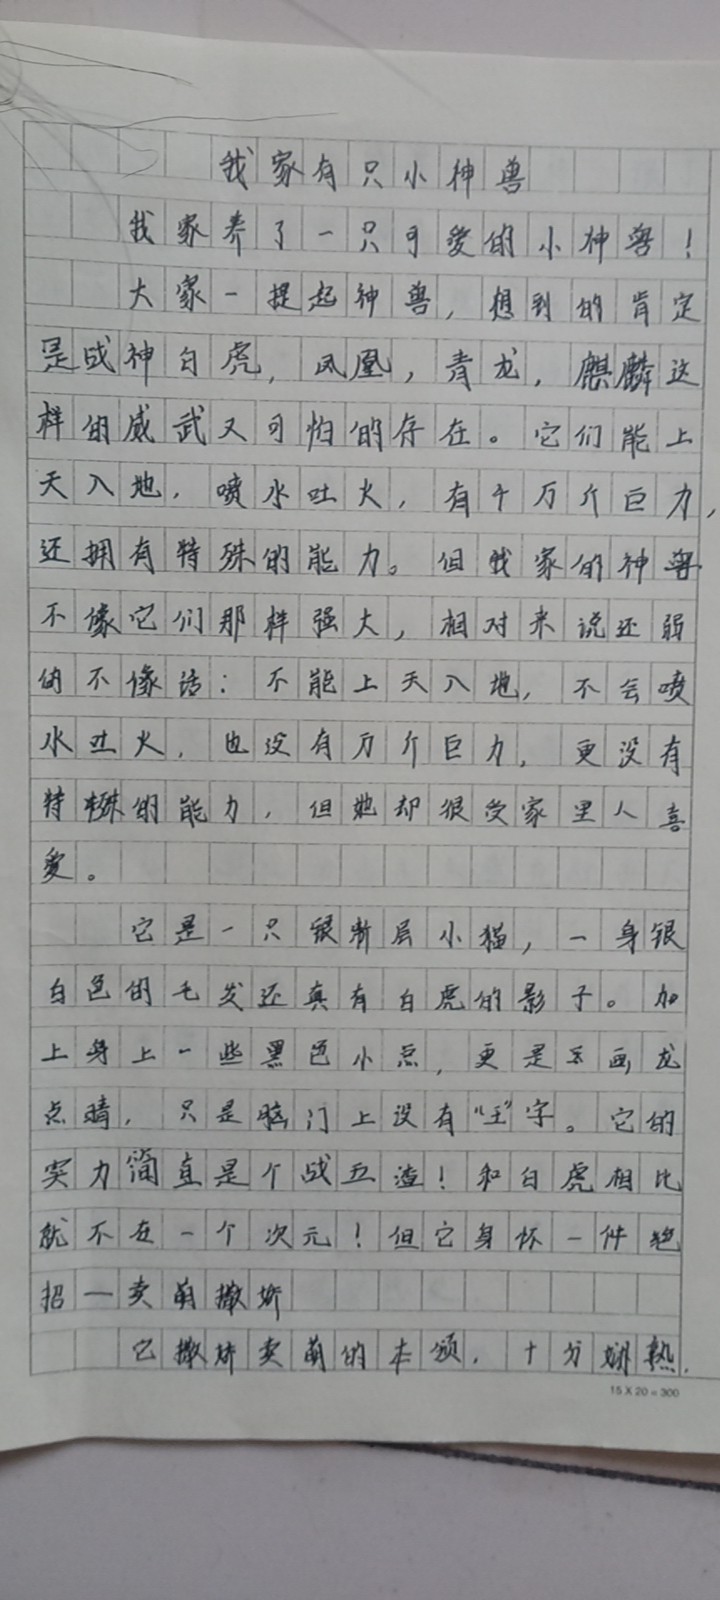 我家有只小神兽
我家养了一只可爱的小神兽！
大家一提起神兽，想到的肯定
是战神白虎，凤凰，青龙，麒麟这
样的威武又可怕的存在。它们能上
天入地，喷水吐火，有千万斤巨力，
还拥有特殊的能力。但我家的神兽
不像它们那样强大，相对来说还弱
的不像话：不能上天入地，不会喷
水吐火，也没有万斤巨力，更没有
特殊的能力，但她却很受家里人喜
爱。
它是一只银渐层小猫，一身银
白色的毛发还真有白虎的影子。加
上身上一些黑色小点，更是画龙
点睛，只是脑门上没有“王”字。它的
实力简直是个战五渣！和白虎相比
就不在一个次元！但它身怀一件绝
招一卖萌撒娇
它撒娇卖萌的本领，十分娴熟，
15 X 20 = 300